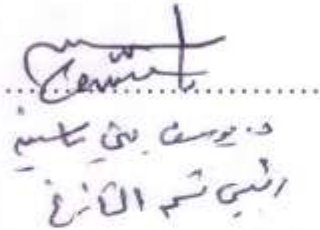 د. يوسف بني ياسين
رئيس قسم التاريخ